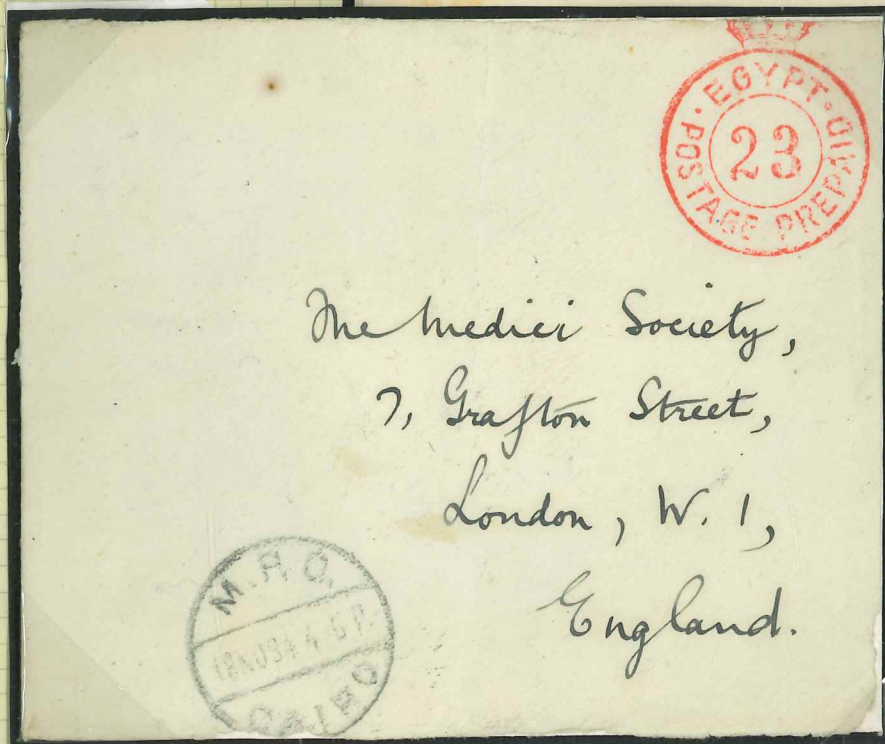 · EGYPT ·
23
POSTAGE PREPAID
The Medici Society,
7, Grafton Street,
London, W. 1,
England.
CAIRO